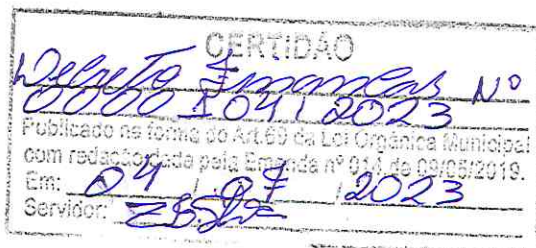 CERTIDÃO
Decreto Financeiro Nº
0000104/2023
Publicado na forma do Art.69 da Lei Orgânica Municipal
com redação dada pela Emenda nº 014 de 09/05/2019.
Em: 04 / 07 / 2023
Servidor: